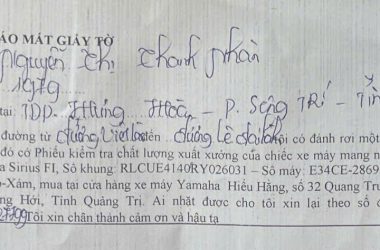 ÁO MẤT GIẤY TỜ
Nguyễn Thị Thanh Nhàn
1979
tại: TDP. Hưng Hoà - P. Sông Trí - Tỉn
đường từ đường đến đường Lê tôi có đánh rơi một
đó có Phiếu kiểm tra chất lượng xuất xưởng của chiếc xe máy mang n
a Sirius FI, Số khung: RLCUE4140RY026031 – Số máy: E34CE-2869
-Xám, mua tại cửa hàng xe máy Yamaha Hiếu Hằng, số 32 Quang Trun
ng Hới, Tỉnh Quảng Trị. Ai nhặt được cho tôi xin lại theo số đ
Tôi xin chân thành cảm ơn và hậu tạ